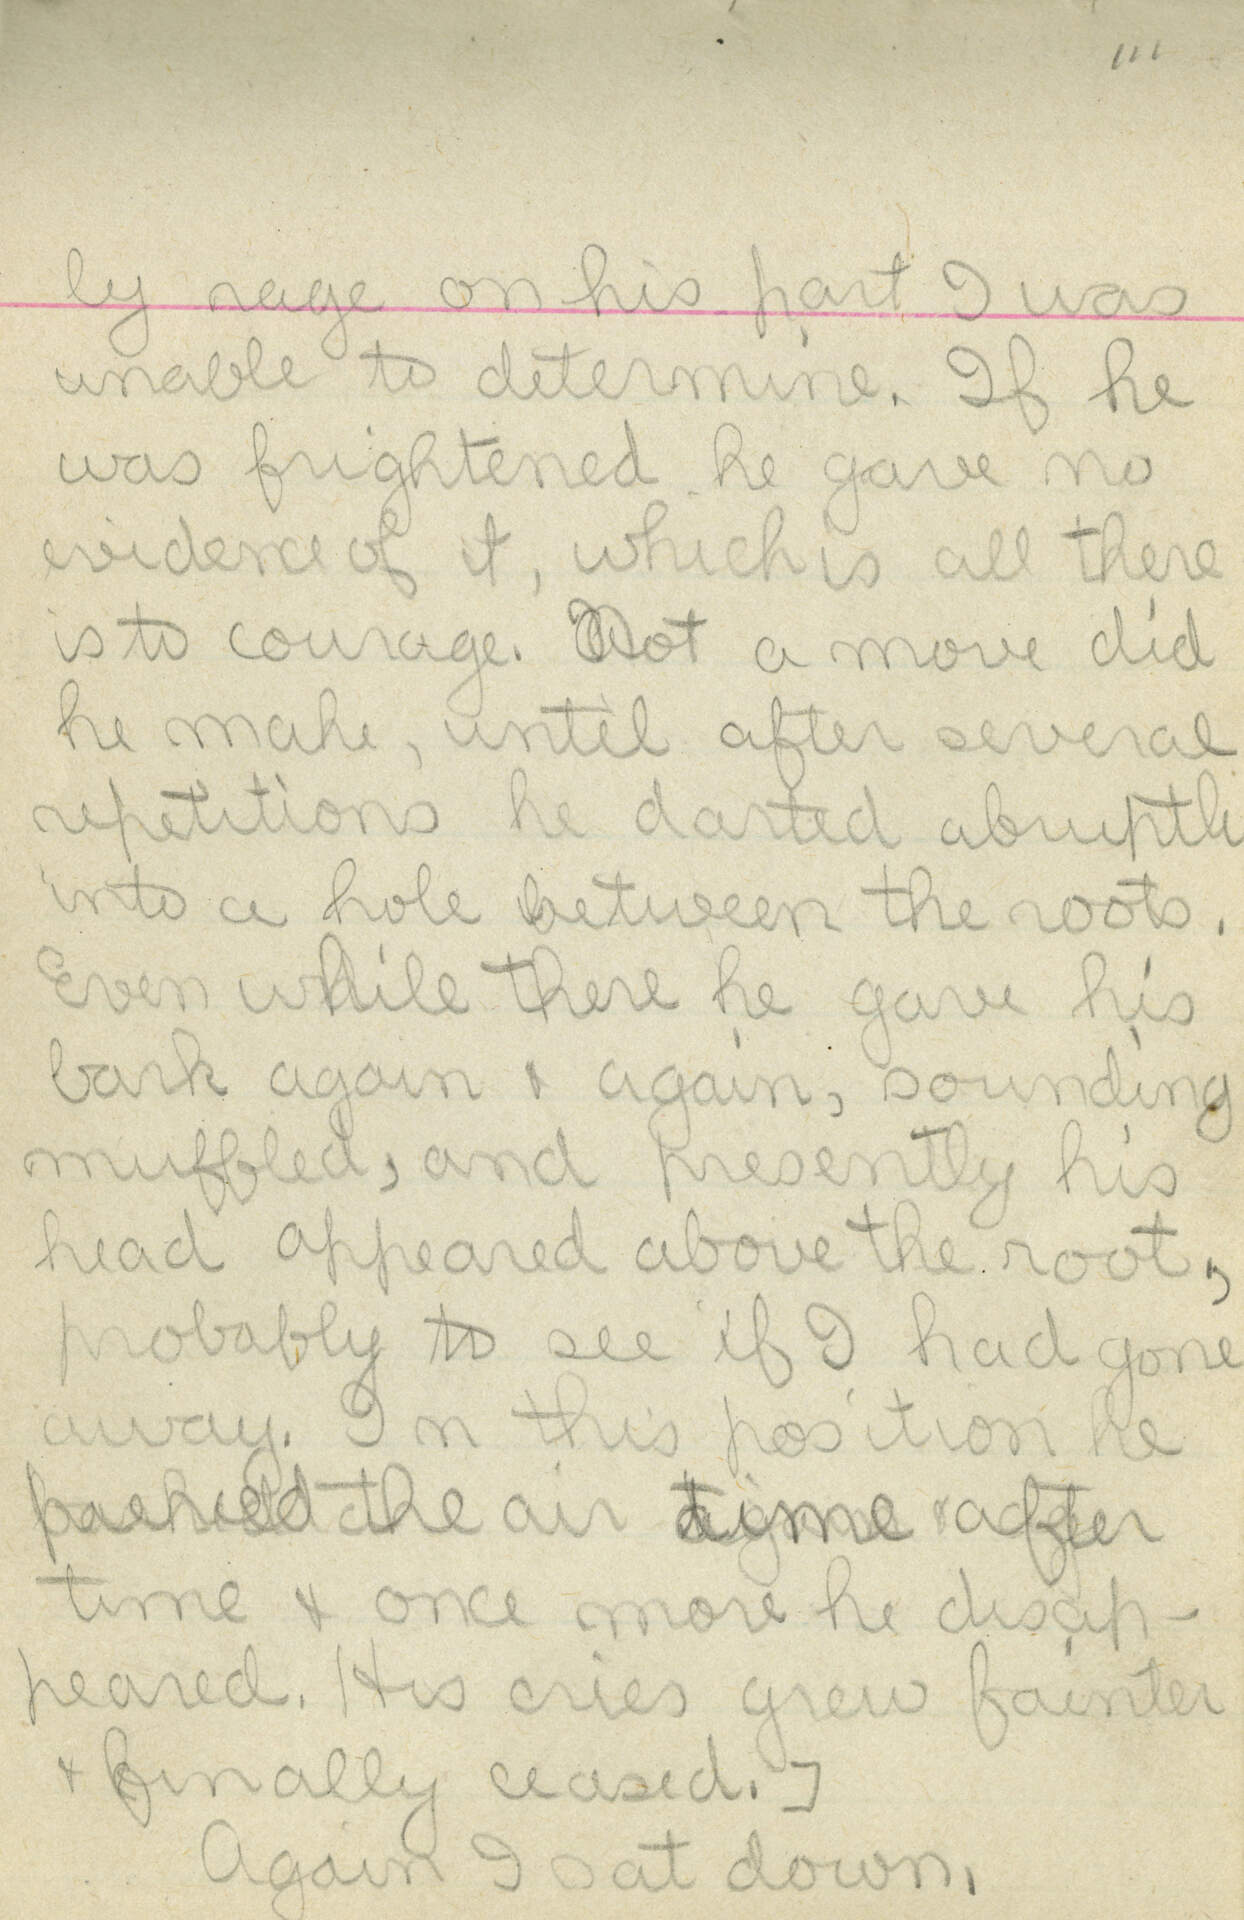 111
ly rage on his part I was
unable to determine. If he
was frightened he gave no
evidence of it, which is all there
is to courage. Not a move did
he make, until after several
repetitions he darted abruptly
into a hole between the roots.
Even while there he gave his
bark again & again, sounding
muffled, and presently his
head appeared above the root,
probably to see if I had gone
away. In this position he
the air time after
time & once more he disap-
peared. His cries grew fainter
& finally ceased.]
Again I sat down.